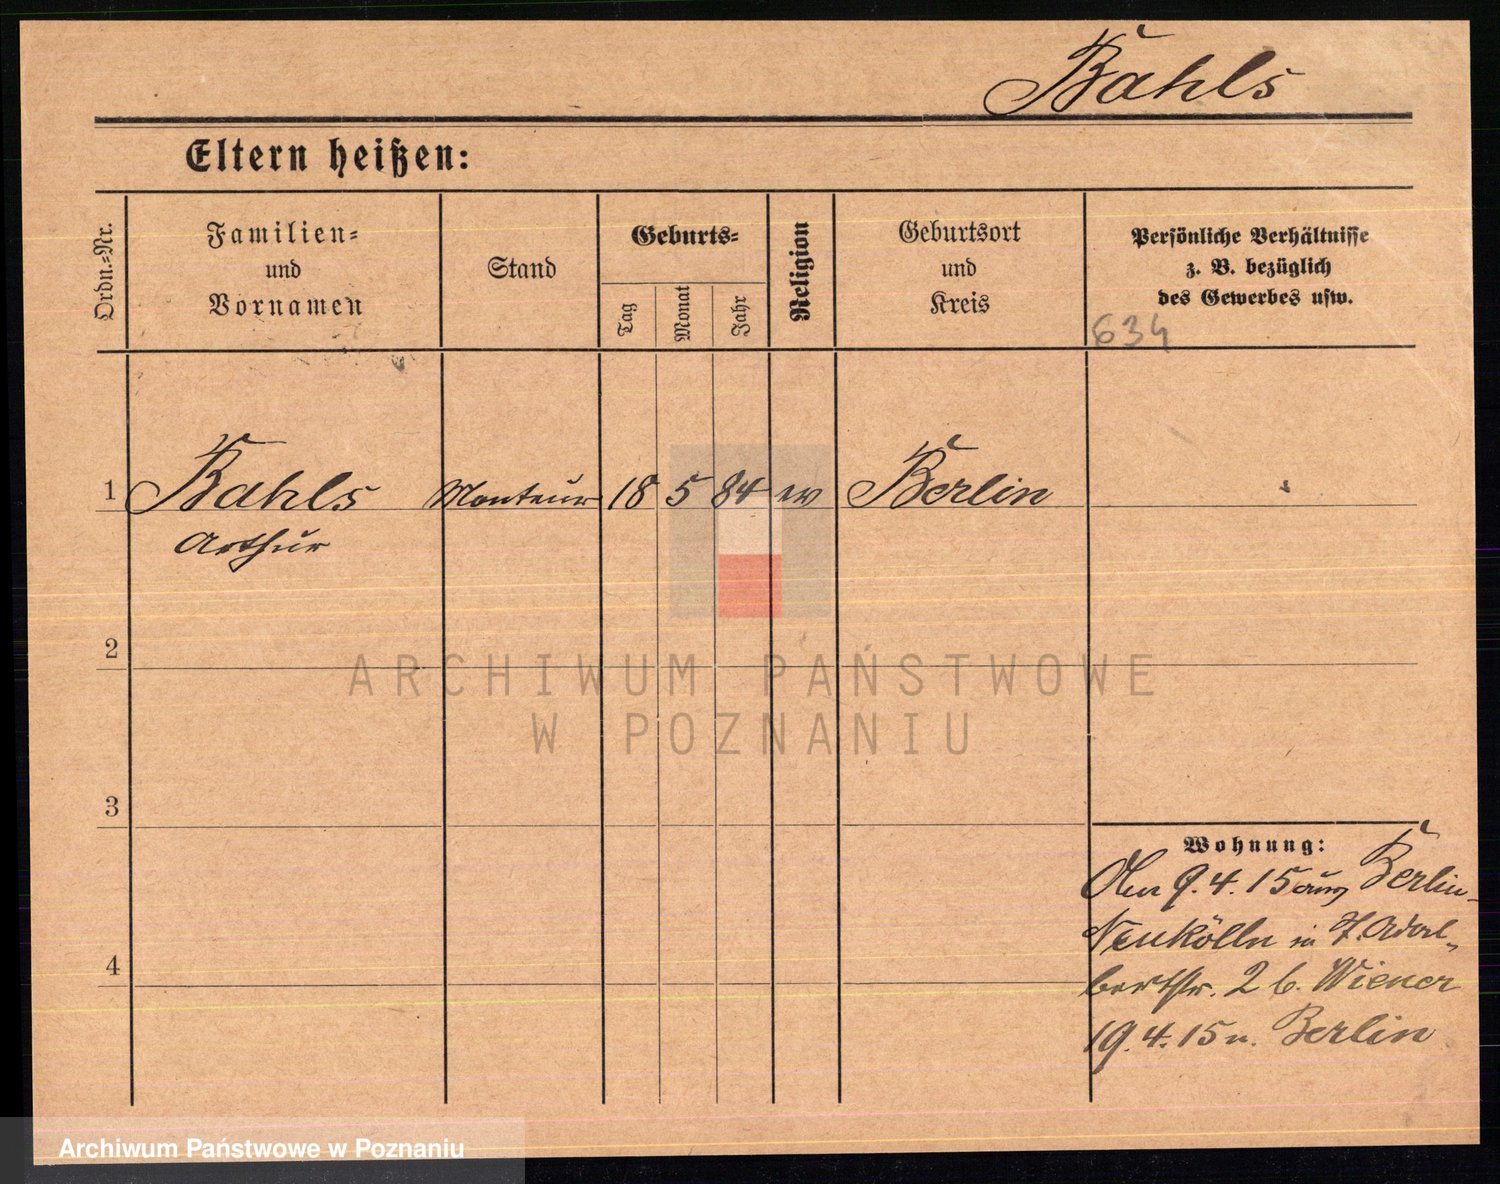 Bahls
Eltern heißen:
Ordn.-Nr.
Familien-
und
Vornamen
Stand
Geburts-
Tag
Monat
Jahr
Religion
Geburtsort
und
Kreis
Persönliche Verhältnisse
z. B. bezüglich
des Gewerbes usw.
634
1 Bahls Monteur 18 5 84 ev Berlin
Arthur
2
3
4
Wohnung:
9.4.15 aus Berlin-
Neukölln in Adal-
bertstr. 2 b. Wiener
19.4.15 n. Berlin
ARCHIWUM PAŃSTWOWE
W POZNANIU
Archiwum Państwowe w Poznaniu